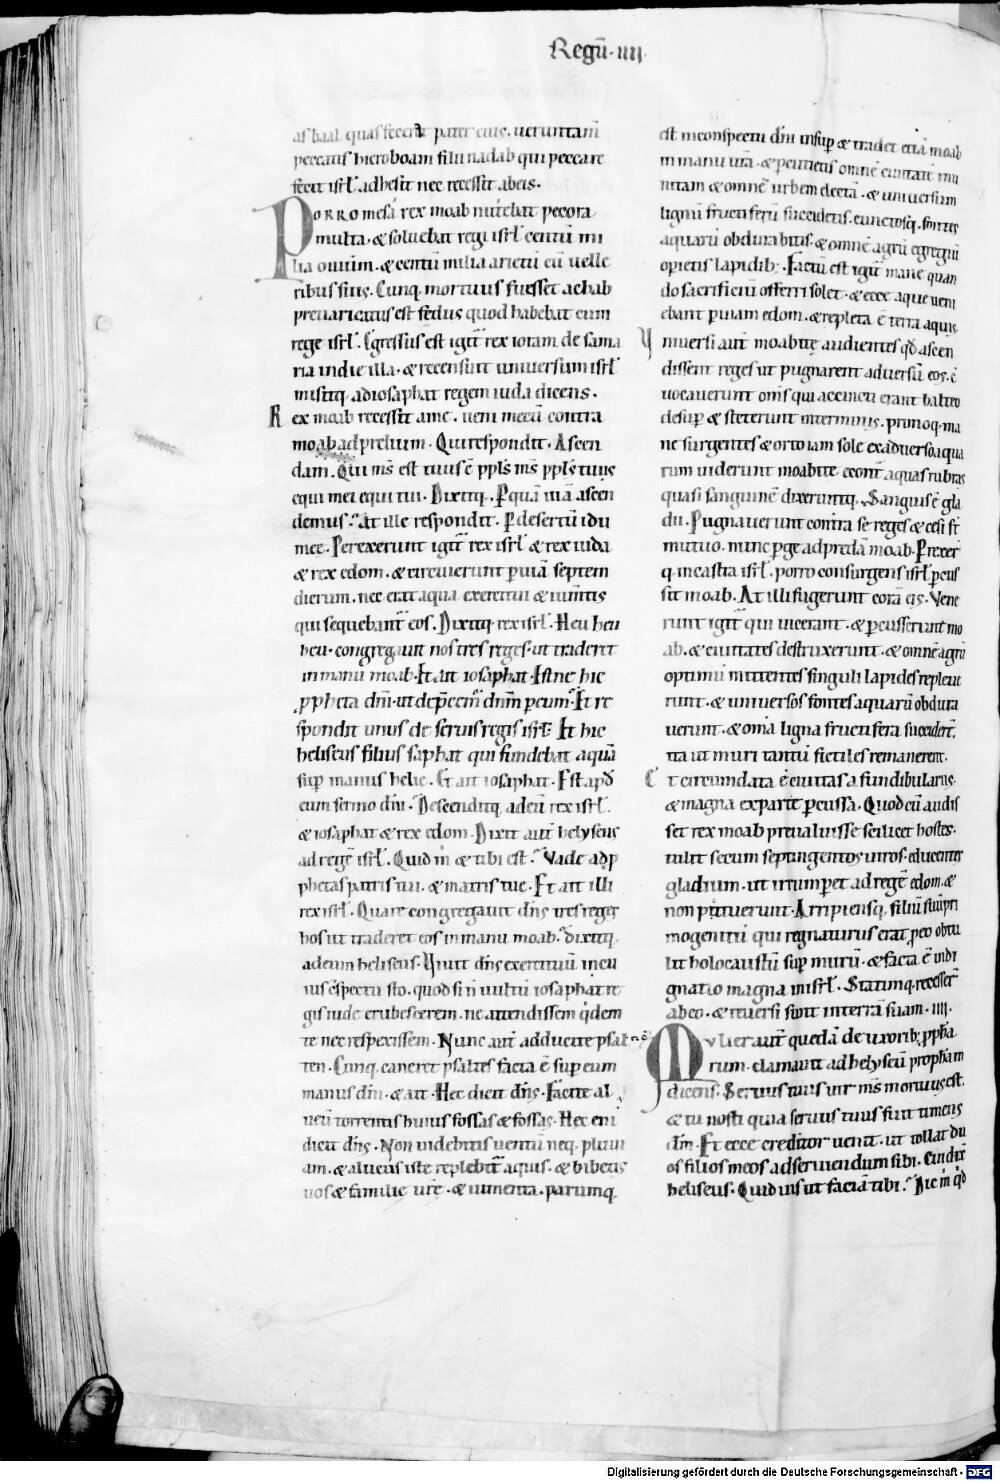 Regū · iiii ·
as baal quas fecerat pater eius. ueruntam̄
peccatis hieroboam filii nadab qui peccare
fecit isrl̄ adhesit nec recessit ab eis.
Porro mesa rex moab nutriebat pecora
multa. & soluebat regi isrl̄ centū mi
lia ouium. & centū milia arietū cū uelle
ribus suis. Cunq; mortuus fuisset achab
preuaricatus est fedus quod habebat cum
rege isrl̄. Egressus est igit̄ rex ioram de sama
ria in die illa. & recensuit uniuersum isrl̄
misitq; ad iosaphat regem iuda dicens.
Rex moab recessit a me. ueni mecū contra
moab ad prelium. Qui respondit. Ascen
dam. Qui ms̄ est tuus ē ppl̄s ms̄ ppl̄s tuus
equi mei equi tui. Dixitq;. P quā uiā ascen
demus? At ille respondit. P desertū idu
mee. Perexerunt igit̄ rex isrl̄ & rex iuda
& rex edom. & circuierunt p uiā septem
dierum. nec erat aqua exercitui & iumtis
qui sequebant̄ eos. Dixitq; rex isrl̄. Heu heu
heu. congregauit nos tres reges. ut traderet
in manu moab. Et ait iosaphat. Estne hic
ppheta dn̄i. ut dep̄cem̄ dn̄m p eum? Et re
spondit unus de seruis regis isrl̄. Et hic
heliseus filius saphat qui fundebat aquā
sup manus helie. Et ait iosaphat. Est apd̄
eum sermo dn̄i. Descenditq; ad eū rex isrl̄
& iosaphat & rex edom. Dixit aut̄ helyseus
ad regē isrl̄. Quid m̄ & tibi est? Vade ad p
phetas patris tui. & matris tue. Et ait illi
rex isrl̄. Quare congregauit dn̄s tres reges
hos ut traderet eos in manu moab. dixitq;
ad eum heliseus. Viuit dn̄s exercituū in cu
ius cspectu sto. quod si n̄ uultū iosaphat re
gis iude erubescerem. ne attendissem q̇dem
te nec respexissem. Nunc aut̄ adducite psal
ten. Cunq; caneret psaltes facta ē sup eum
manus dn̄i. & ait. Hec dicit dn̄s. Facite al
ueū torrentis huius fossas & fossas. Hec eni
dicit dn̄s. Non uidebitis uentū neq; pluui
am. & alueus iste replebit̄ aquis. & bibetis
uos & familie ure. & iumenta. parumq;
est in conspectu dn̄i insup & tradet etiā moab
in manu urā. & percutietis omnē ciuitatē mu
nitam & omnē urbem electā. & uniuersum
lignū fructiferū succidetis. cunctosq; fontes
aquarū obdurabitis. & omnē agrū egregiū
opietis lapidib;. Factū est igit̄ mane quan
do sacrificiū offerri solet. & ecce aque ueni
ebant p uiam edom. & repleta ē terra aquis.
Vniuersi aut̄ moabite audientes qd̄ ascen
dissent reges ut pugnarent aduersū eos. c
uocauerunt om̄s qui accincti erant balteo
desup & steterunt in terminis. primoq; ma
ne surgentes & orto iam sole ex aduerso aqua
rum uiderunt moabite econt̄ aquas rubras
quasi sanguinē dixeruntq;. Sanguis ē gla
dii. Pugnauerunt contra se reges & cesi st̄
mutuo. nunc p̄ge ad predā moab. Prexer
q; in castra isrl̄. porro consurgens isrl̄ p̄cus
sit moab. At illi fugerunt corā eis. Vene
runt igit̄ qui uicerant. & p̄cusserunt mo
ab. & ciuitates destruxerunt. & omnē agrū
optimū mittentes singuli lapides repleue
runt. & uniuersos fontes aquarū obdura
uerunt. & omīa ligna fructifera succider̄t.
ita ut muri tantū fictiles remanerent.
Et circumdata ē ciuitas a fundibulariis.
& magna ex parte p̄cussa. Quod cū uidis
set rex moab preualuisse scilicet hostes.
tulit secum septingentos uiros. educentes
gladium. ut irrump̄et ad regē edom. &
non potuerunt. Arripiensq; filiū suū pri
mogenitū qui regnaturus erat p eo obtu
lit holocaustū sup murū. & facta ē indi
gnatio magna in isrl̄. Statimq; recesser̄
ab eo. & reuersi sunt in terrā suam. iiii.
Mulier aut̄ quedā de uxorib; ppha
rum. clamauit ad helyseū prophām
dicens. Seruus tuus uir ms̄ mortuus est.
& tu nosti quia seruus tuus fuit timens
dm̄. Et ecce creditor uenit. ut tollat du
os filios meos ad seruiendum sibi. Cui dix̄
heliseus. Quid uis ut faciā tibi? Dic m̄ qd̄
Digitalisierung gefördert durch die Deutsche Forschungsgemeinschaft - DFG